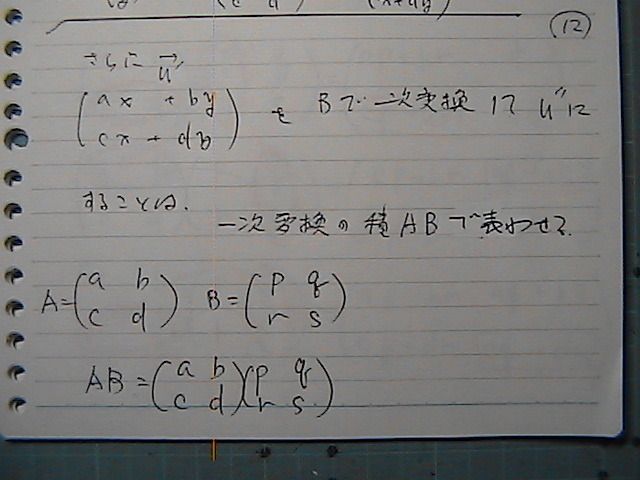 (12)
さらに u'
( ax + by
cx + dy ) を Bで一次変換して u''に
することは、
一次変換の積ABで表わせる。
A = ( a b
c d ) B = ( p q
r s )
AB = ( a b
c d )( p q
r s )